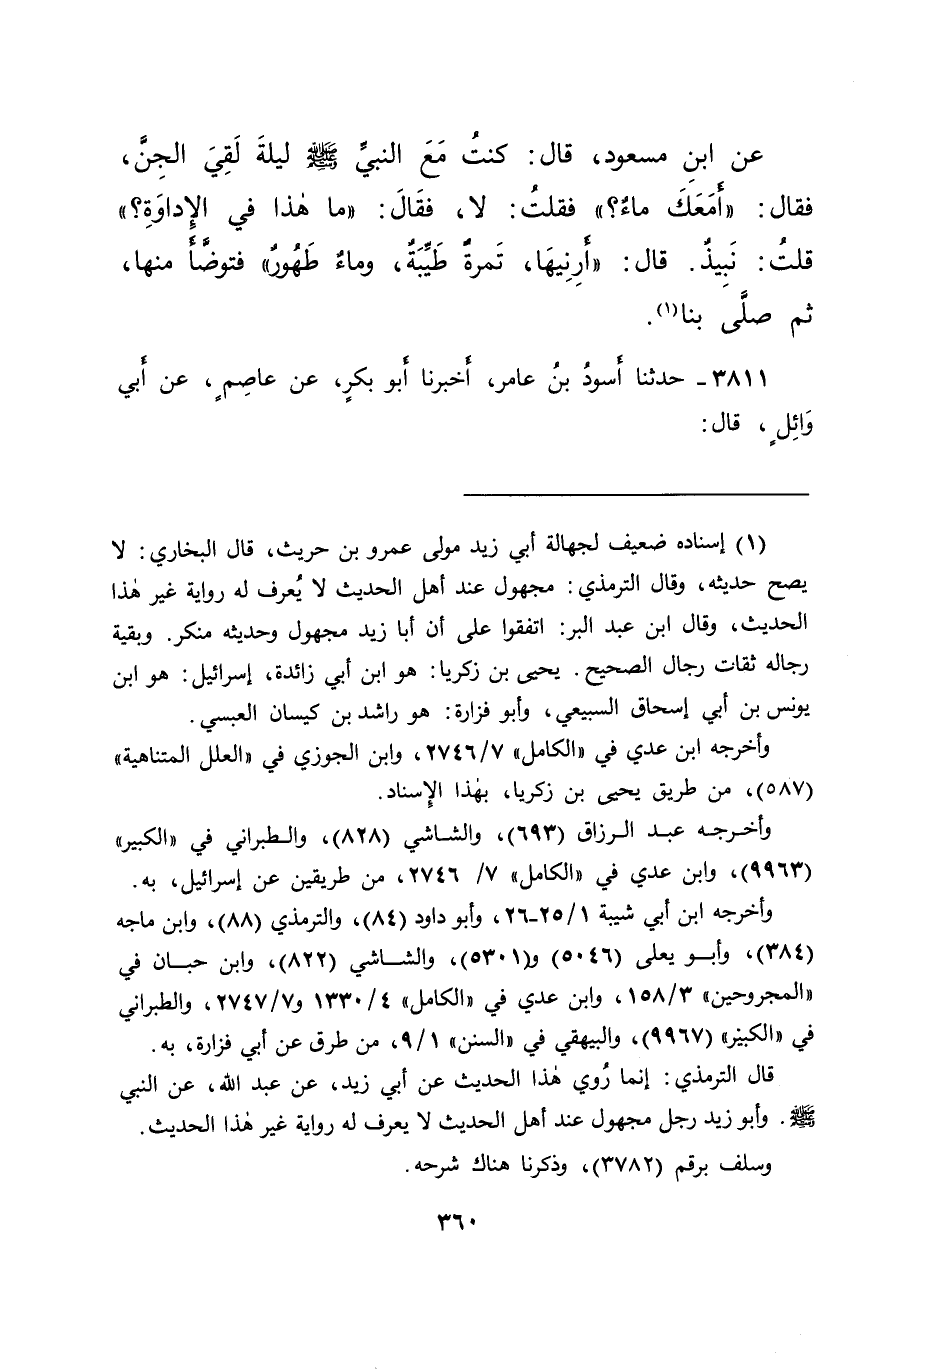 عن ابنِ مسعود، قال: كنتُ مَعَ النبيِّ ﷺ ليلةَ لَقِيَ الجِنَّ،
فقال: «أَمَعَكَ ماءٌ؟» فقلتُ: لا، فقَالَ: «ما هٰذا في الإِداوَةِ؟»
قلتُ: نَبِيذٌ. قال: «أَرِنِيهَا، تَمرةٌ طَيِّبَةٌ، وماءٌ طَهُورٌ» فتوضَّأَ منها،
ثم صلَّى بنا(١).
٣٨١١ـ حدثنا أَسودُ بنُ عامر، أَخبرنا أَبو بكرٍ، عن عاصِمٍ، عن أَبي
وَائِلٍ، قال:
(١) إسناده ضعيف لجهالة أبي زيد مولى عمرو بن حريث، قال البخاري: لا
يصح حديثه، وقال الترمذي: مجهول عند أهل الحديث لا يُعرف له رواية غير هٰذا
الحديث، وقال ابن عبد البر: اتفقوا على أن أبا زيد مجهول وحديثه منكر. وبقية
رجاله ثقات رجال الصحيح. يحيى بن زكريا: هو ابن أبي زائدة، إسرائيل: هو ابن
يونس بن أبي إسحاق السبيعي، وأبو فزارة: هو راشد بن كيسان العبسي.
وأخرجه ابن عدي في «الكامل» ٢٧٤٦/٧، وابن الجوزي في «العلل المتناهية»
(٥٨٧)، من طريق يحيى بن زكريا، بهٰذا الإِسناد.
وأخرجه عبد الرزاق (٦٩٣)، والشاشي (٨٢٨)، والطبراني في «الكبير»
(٩٩٦٣)، وابن عدي في «الكامل» ٧/ ٢٧٤٦، من طريقين عن إسرائيل، به.
وأخرجه ابن أبي شيبة ٢٥/١ـ٢٦، وأبو داود (٨٤)، والترمذي (٨٨)، وابن ماجه
(٣٨٤)، وأبو يعلى (٥٠٤٦) و(٥٣٠١)، والشاشي (٨٢٢)، وابن حبان في
«المجروحين» ١٥٨/٣، وابن عدي في «الكامل» ١٣٣٠/٤ و٢٧٤٧/٧، والطبراني
في «الكبير» (٩٩٦٧)، والبيهقي في «السنن» ٩/١، من طرق عن أبي فزارة، به.
قال الترمذي: إنما رُوي هٰذا الحديث عن أبي زيد، عن عبد الله، عن النبي
ﷺ. وأبو زيد رجل مجهول عند أهل الحديث لا يعرف له رواية غير هٰذا الحديث.
وسلف برقم (٣٧٨٢)، وذكرنا هناك شرحه.
٣٦٠